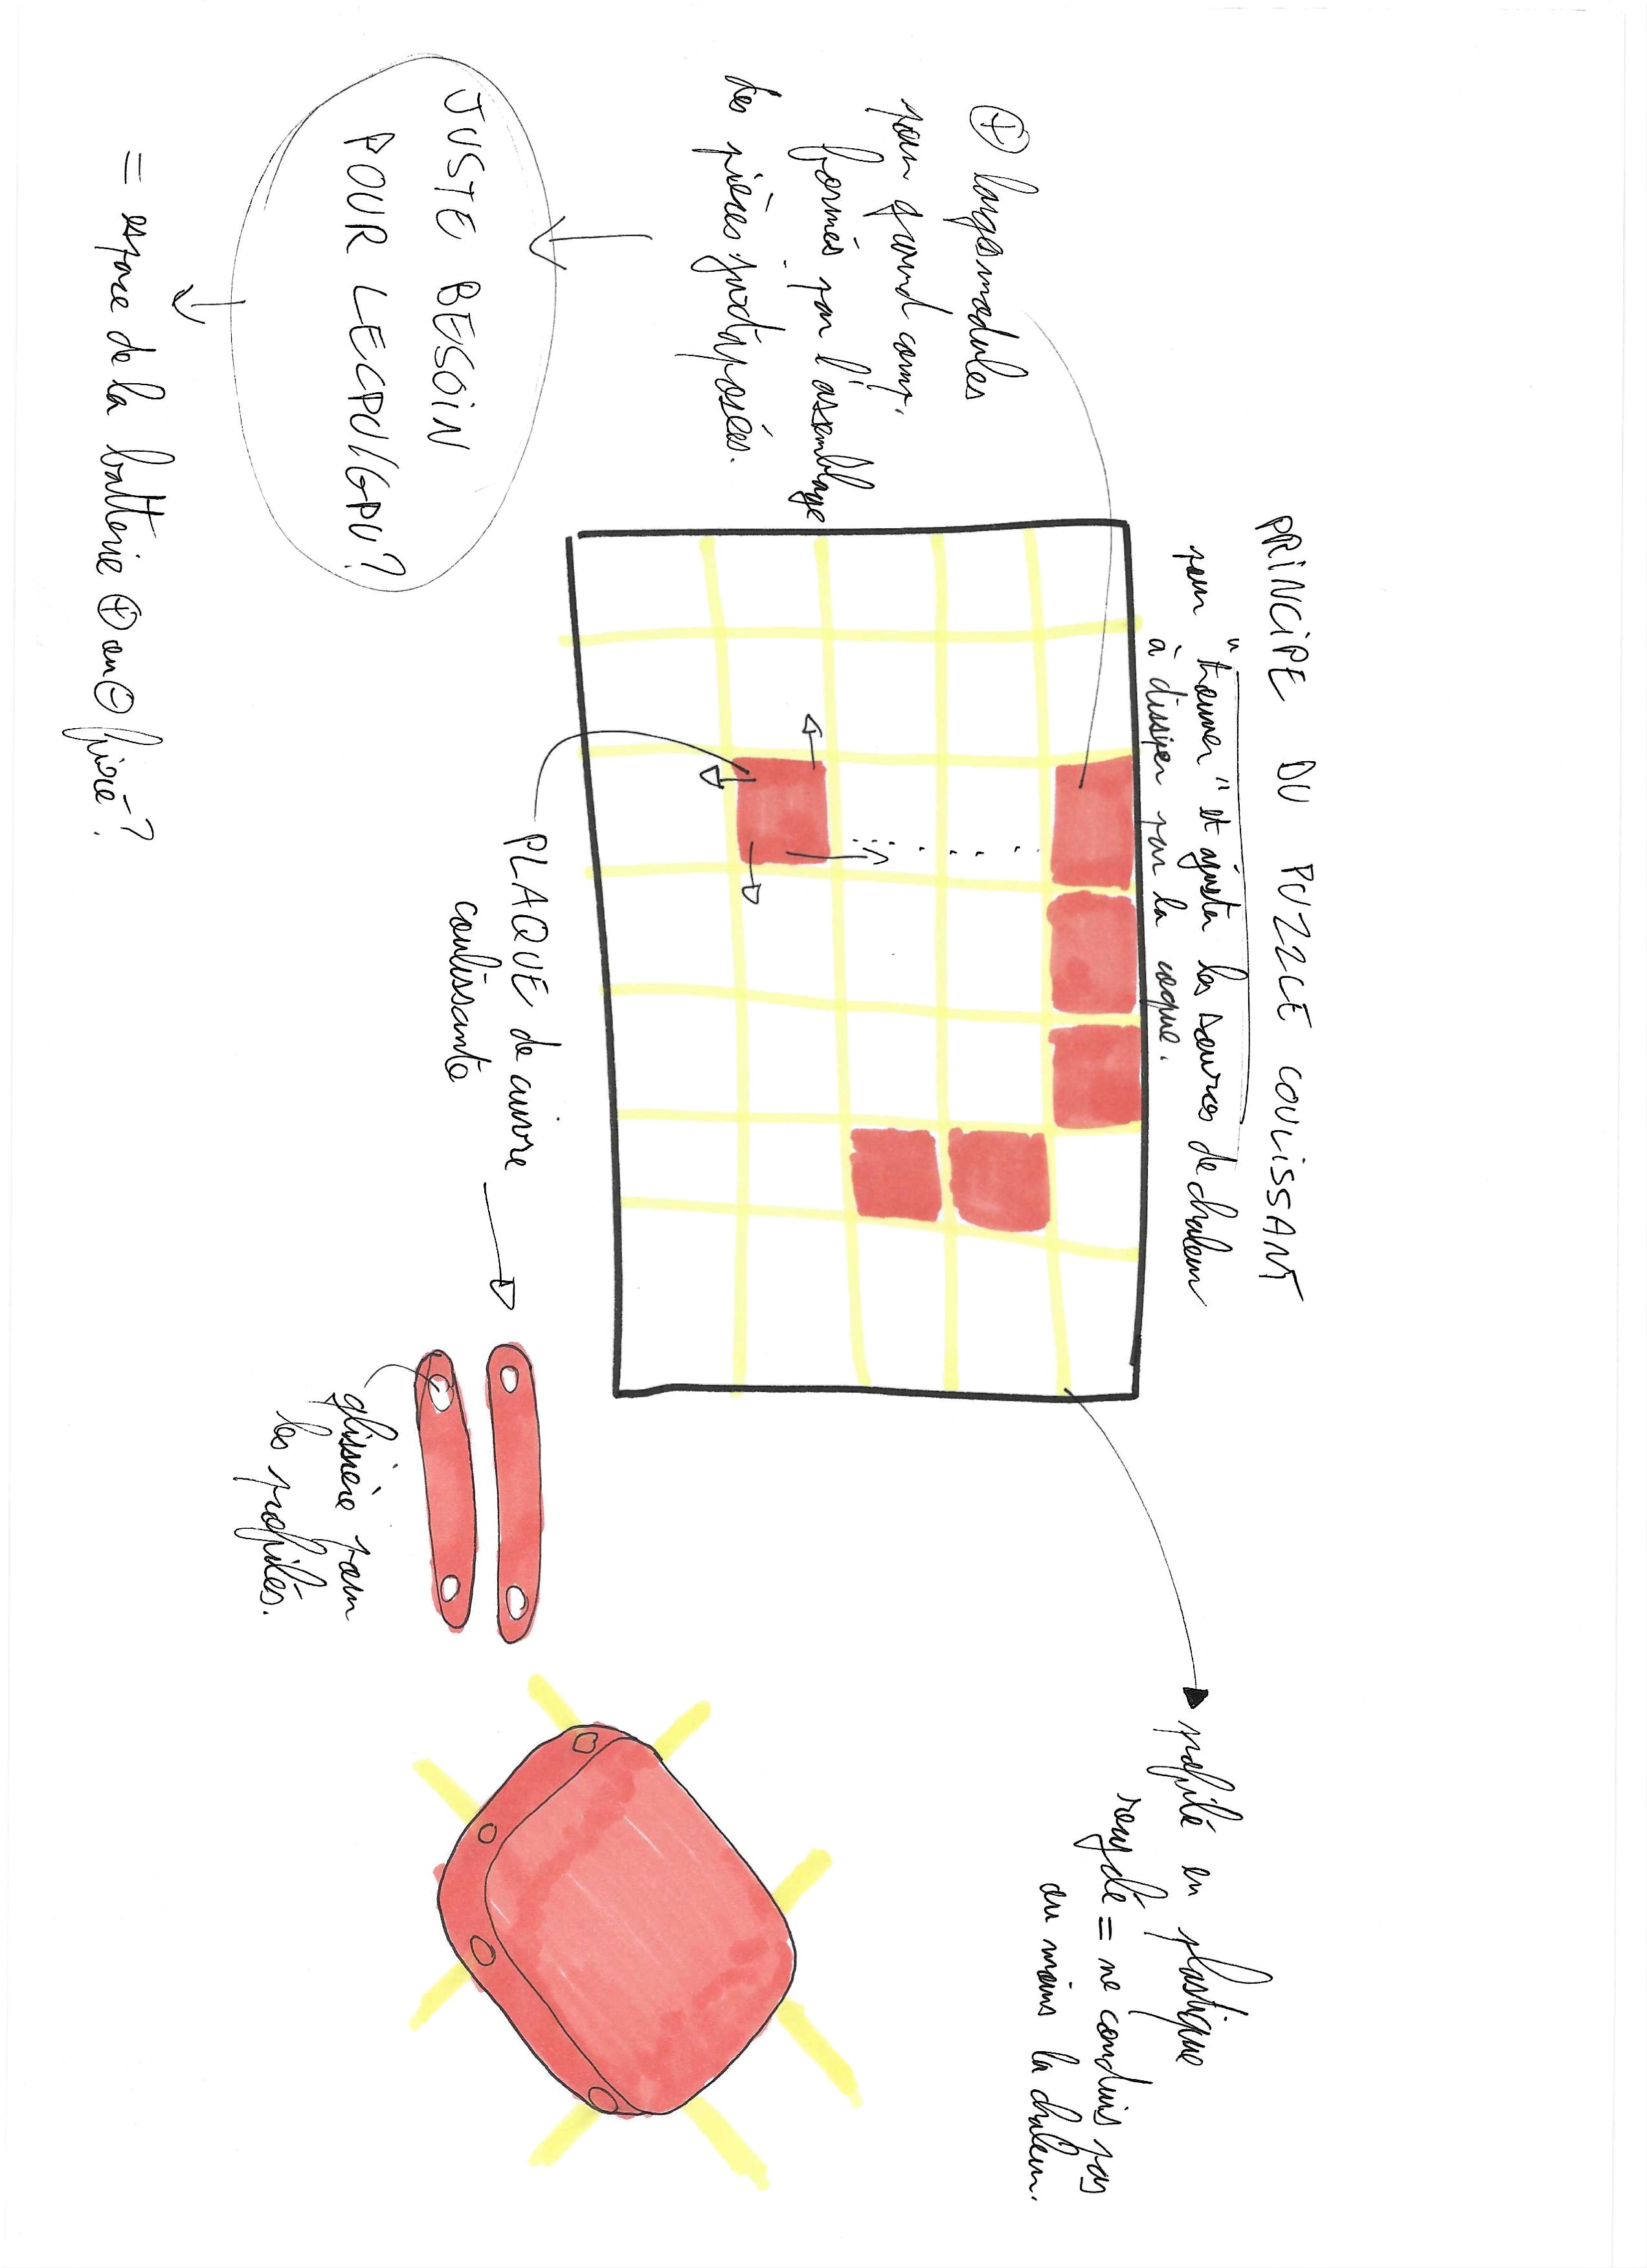 PRINCIPE DU PUZZLE COULISSANT
pour "trouver" et ajuster les sources de chaleur
à dissiper sur la coque.
⊕ larges modules
pour grand comp.
formés par l'assemblage
des pièces juxtaposées.
JUSTE BESOIN
POUR LE CPU/GPU?
= espace de la batterie ⊕ ou ⊖ fixe?
PLAQUE de cuivre
coulissante
glissière pour
les profilés.
profilé en plastique
recyclé = ne conduis pas
ou moins la chaleur.